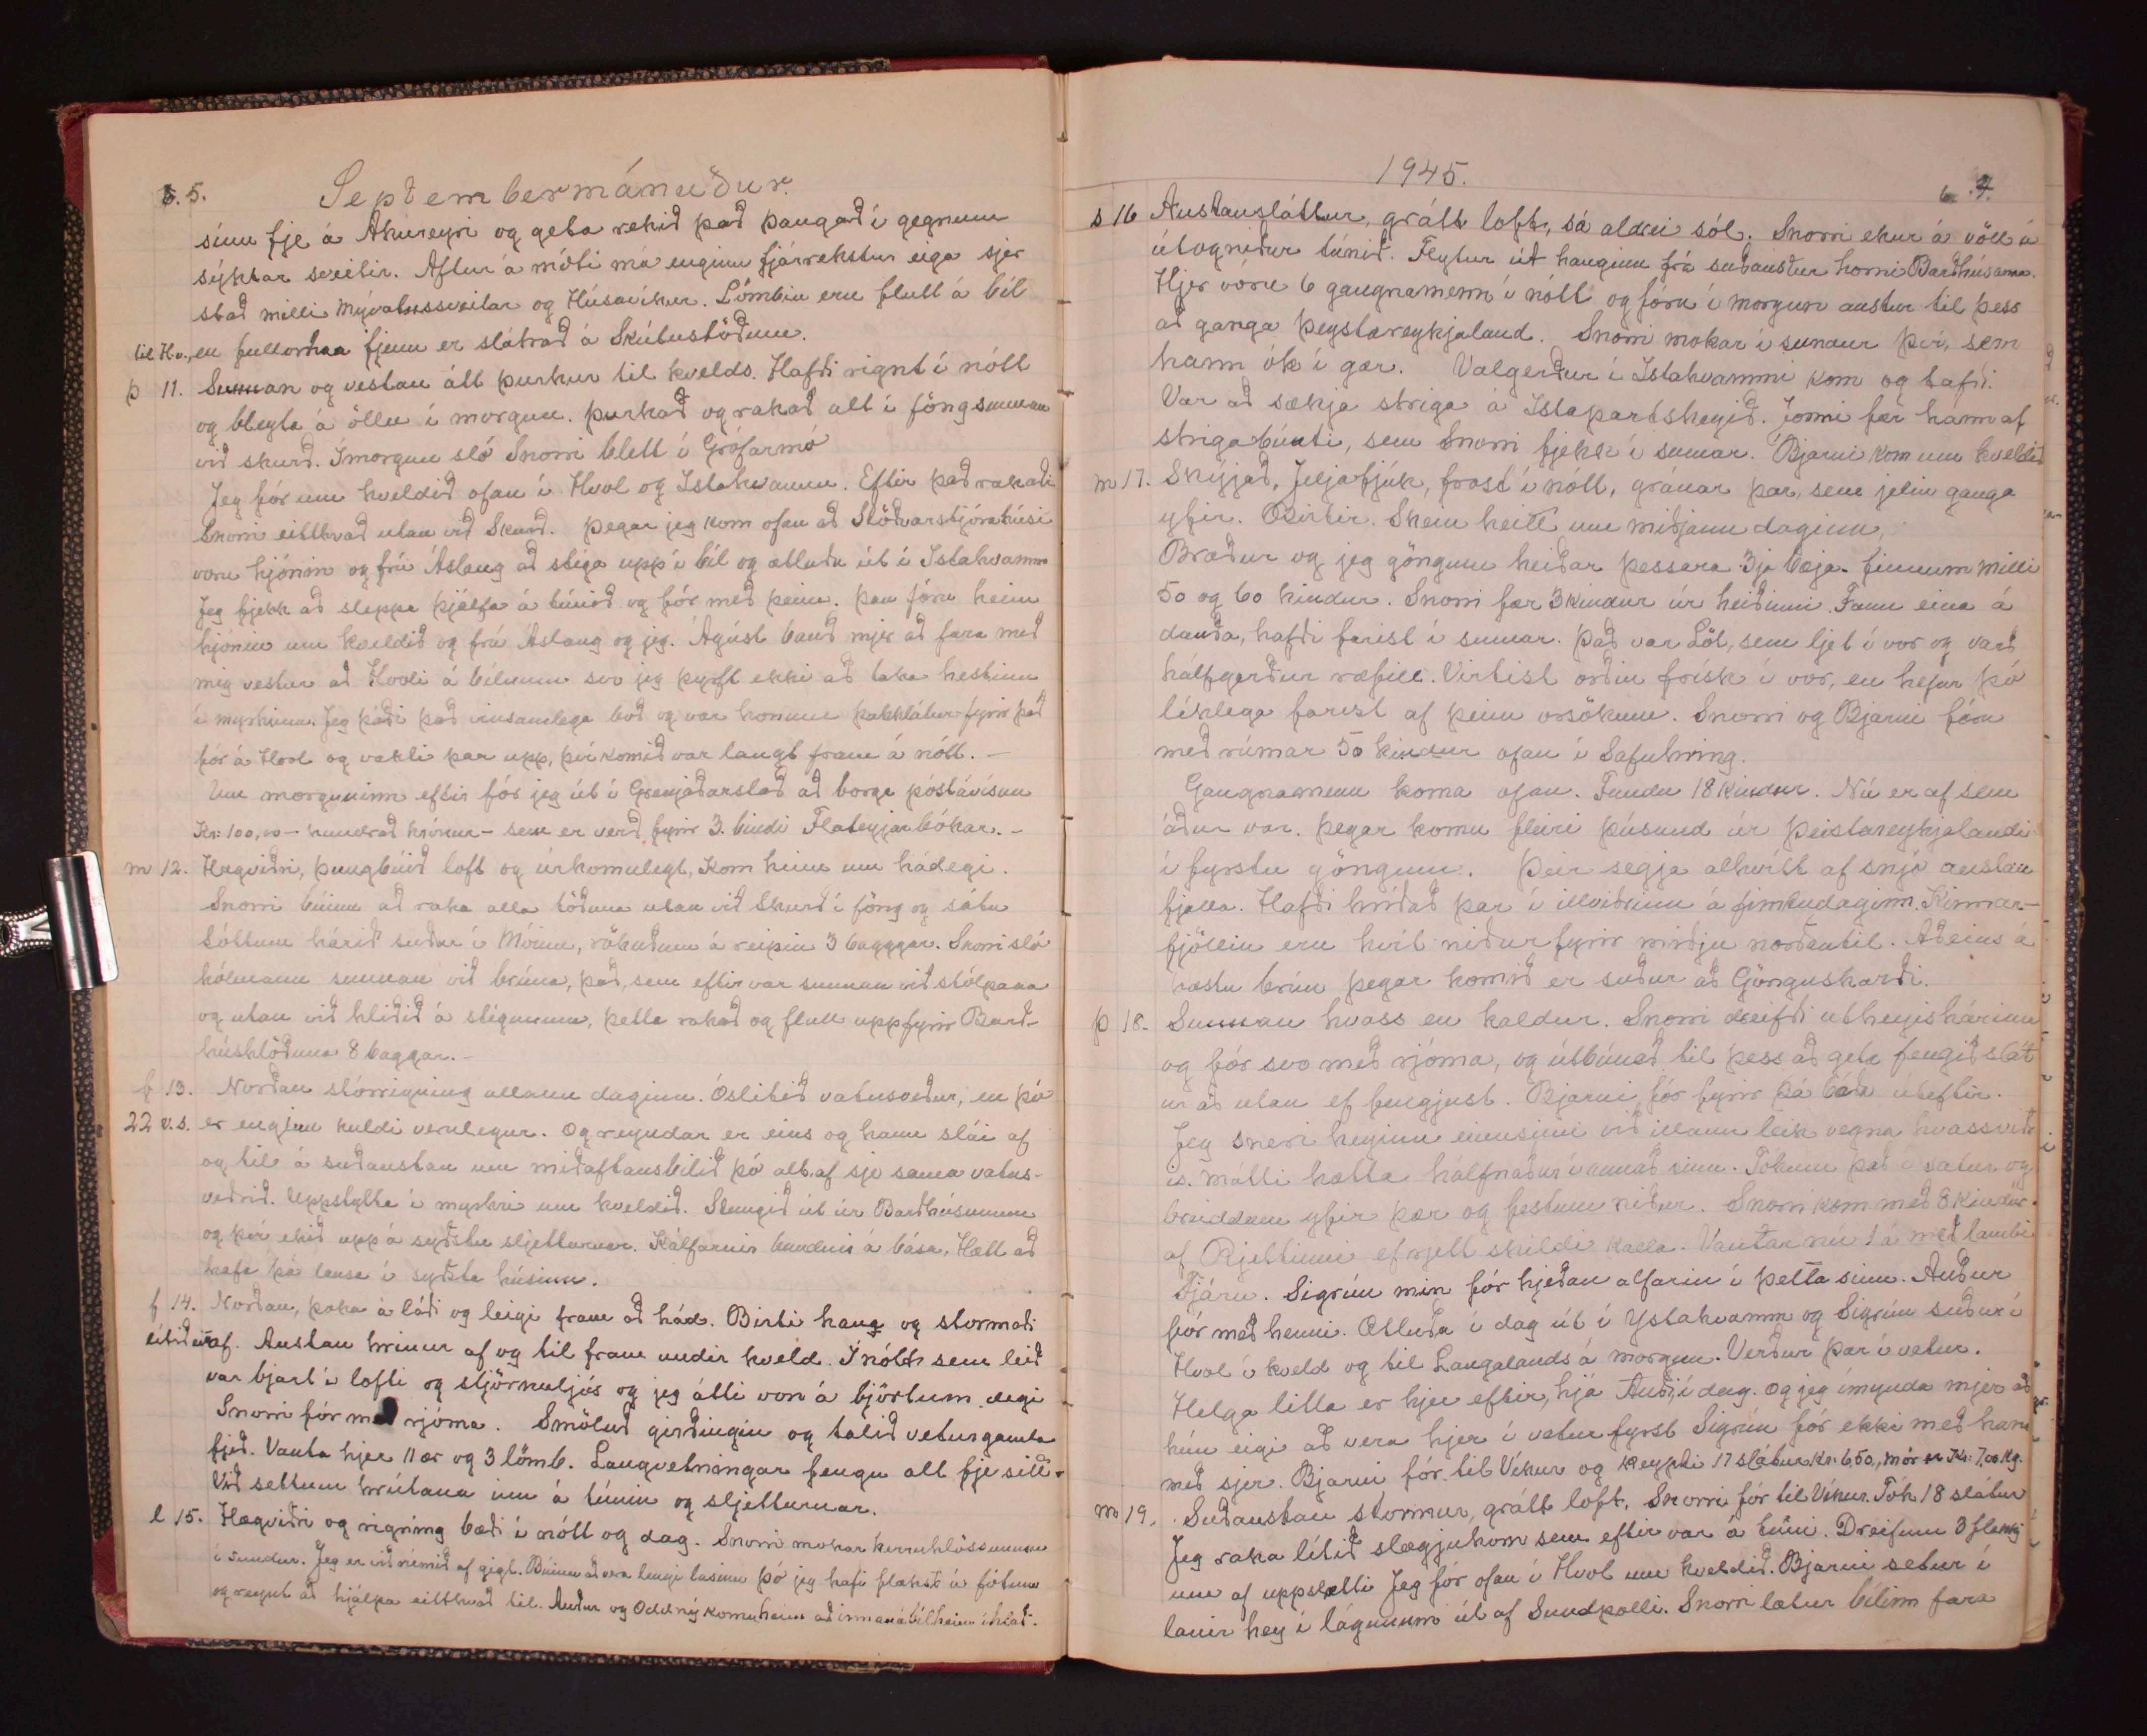 5. Septembermánuður.
sínu fje á Akureyri og geta rekið það þangað í gegnum
sýktar sveitir. Aftur á móti má enginn fjárrekstur eiga sjer
stað milli Mývatnssveitar og Húsavíkur. Lömbin eru flutt á bíl
til Hv., en fullorðna fjenu er slátrað á Skútustöðum.
þ 11. Sunnan og vestan átt þurkur til kvelds. Hafði rignt í nótt
og bleyta á öllu í morgun. Þurkað og rakað alt í föng sunnan
við skurð. Ímorgun sló Snorri blett í Grófarmó
Jeg fór um kveldið ofan í Hvol og Istahvamm. Eftir það rakaði
Snorri eitthvað utan við Skurð. Þegar jeg kom ofan að Stöðvarstjórahúsi
voru hjónin og frú Áslaug að stíga upp í bíl og ætluðu út í Istahvamm
Jeg fjekk að sleppa Þjálfa á túnið og fór með þeim. Þau fóru heim
hjónin um kveldið og frú Áslaug og jeg. Ágúst bauð mjer að fara með
mig vestur að Hvoli á bílnum svo jeg þyrfti ekki að taka hestinn
í myrkinu. Jeg þáði það vinsamlega boð og var honum þakklátur fyrir það
fór á Hvol og vakti þar upp, því komið var langt fram á nótt. —
Um morguninn eftir fór jeg út í Grenjaðarstað að borga póstávísun
Kr: 100,00 — hundrað krónur — sem er verð fyrir 3. bindi Flateyjarbókar. —
m 12. Hægviðri, þungbúið loft og úrkomulegt, Kom heim um hádegi.
Snorri búinn að raka alla töðuna utan við Skurð í föng og sátu
tóttum hárið suður í Móinn, röðuðum á reipin 3 bagggar. Snorri sló
hólmann sunnan við brúna, það, sem eftir var sunnan við stólpana
og utan við hliðið á stígunum, þetta rakað og flutt uppfyrir Barð-
húshlöðuna 8 baggar. —
f 13. Norðan stórrigning allann daginn. Óslitið vatnsveður, en þó
22 v.s. er enginn kuldi verulegur. Og reyndar er eins og hann slái af
og til á suðaustan um miðaftansbilið þó altaf sje sama vatns-
veðrið. Uppstytta í myrkri um kveldið. Stungið út úr Barðhúsunum
og því ekið upp á syðstu sljetturnar. Kálfarnir bundnir á bása. Hætt að
hafa þá lausa í syðsta húsinu.
f 14. Norðan, þoka á láði og leigi fram að hád. Birti hang og stormaði
Austan hrinur af og til fram undir kveld. Í nótt sem leið
var bjart í lofti og stjörnuljós og jeg átti von á björtum degi
Snorri fór með rjóma. Smöluð girðingin og talið veturgamla
fjeð. Vanta hjer 11 ær og 3 lömb. Laugvetningar fengu alt fje sitt.
Við settum hrútana inn á túnin og sljetturnar.
l 15. Hægviðri og rigning bæði í nótt og dag. Snorri mokar kerruhlössunum
í sundur. Jeg er viðnúmið af gigt. Búinn að vera lengi lasinn þó jeg hafi flækst á fótum
og reynt að hjálpa eitthvað til. Auður og Oddný komu heim að innan á bíl heim í hlað.
1945.
6 7.
s 16 Austansláttur, grátt loft, sá aldrei sól. Snorri ekur á völl á
útognorður túnið. Flytur út hauginn frá suðaustur horni Barðhúsanna.
Hjer vóru 6 gangnamenn í nótt og fóru í morgun austur til þess
að ganga Þeystareykjaland. Snorri mokar í sundur því, sem
hann ók í gær. Valgerður í Istahvammi kom og tafði.
Var að sækja striga á Istapartsheyið. Jonni fær hann af
strigabúnti, sem Snorri fjekk í sumar. Bjarni kom um kveldið
m 17. Skýjað, Jeljafjúk, frost í nótt, gránar þar, sem jelin ganga
yfir. Obirtir. Skein heitt um miðjann daginn,
Bræður og jeg göngum heiðar þessara 3ja bæja. finnum milli
50 og 60 kindur. Snorri fær 3 kindur úr heiðinni. Fann eina á
dauða, hafði farist í sumar. Það var Löt, sem ljet í vor og varð
hálfgerður ræfill. Virtist orðin frísk í vor, en hefur þó
líklega farist af þeim orsökum. Snorri og Bjarni fóru
með rúmar 50 kindur ofan í Safnhring.
Gangnamenn koma ofan. Fundu 18 kindur. Nú er af sem
áður var. Þegar komu fleiri þúsund úr Þeistareykjalandi
í fyrstu göngum. Þeir segja alhvítt af snjó austan
fjalla. Hafði hríðað þar í illviðrinu á fimtudaginn. Kinnar-
fjöllin eru hvít niður fyrir miðju norðantil. Aðeins á
næstu brún þegar komið er suður að Gönguskarði.
þ 18. Sunnan hvass en kaldur. Snorri dreifði útheyishárinu
og fór svo með rjóma, og útbúnað til þess að geta fengið slát
ur að utan ef fengjust. Bjarni fór fyrir þá báða úteftir.
Jeg sneri heyinu einusinni við illann leik vegna hvassviðr
is. Mátti hætta hálfnaður í annað sinn. Tókum það í sátur og
breiddum yfir þær og festum niður. Snorri kom með 8 kindur
af Rjettinni ef rjett skildi kalla. Vantar nú 1 á með lambi
Fjáru. Sigrún mín fór hjeðan alfarin í þetta sinn. Auður
fór með henni. Ætluðu í dag út í Ystahvamm og Sigrún suður í
Hvol í kveld og til Laugalands á morgun. Verður þar í vetur.
Helga litla er hjer eftir, hjá Auði, í dag. Og jeg ímynda mjer að
hún eigi að vera hjer í vetur fyrst Sigrún fór ekki með hana
með sjer. Bjarni fór til Víkur og keypti 17 slátur Kr: 6,50, mör er Kr: 7,00 kg.
m 19. Suðaustan stormur, grátt loft, Snorri fór til Víkur. Tók 18 slátur
Jeg raka lítið slægjukorn sem eftir var á túni. Dreifum 3 flekkj
um af uppslætti Jeg fór ofan í Hvol um kveldið. Bjarni setur í
lanir hey í lágunum út af Sundpolli. Snorri lætur bílinn fara